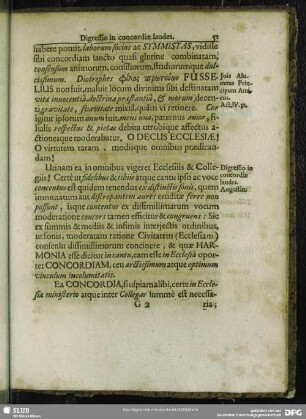 Digressio in concordiæ laudes. 51
habere potuit, laborum socios ac SYMMISTAS, vidisse
sibi concordiam sancto quasi glutine combinatam,
consensum animorum, consiliorum, studiorumque dul-
cissimum. Diotrephes FUSSE-
LIUS non fuit, maluit locum divinimus sibi destinatum
vitæ innocentiâ, doctrinæ præstantiâ, & morum decen-
ti gravitate, suavitate mixtâ, quam vi retinere. Co-
igitur ipsorum anima una, mens una, paternus amor, fi-
lialis respectus & pietas debita utrobique affectus a-
ctionesque moderabatur, O DECUS ECCLESIÆ!
O virtutem raram, modisque omnibus prædican-
dam!
Utinam ea in omnibus vigeret Ecclesiis & Colle-
giis! Certè ut fidibus & tibiis atque cantu ipso ac voce
concentus est quidem tenendus ex distinctis sonis, quem
immutatum aut discrepantem aures eruditæ ferre non
possunt, isque concentus ex dissimillimarum vocum
moderatione concors tamen efficitur & congruens: Sic
ex summis & mediis & infimis interjectis ordinibus,
ut sonis, moderatam ratione Civitatem (Ecclesiam)
consensu dissimillimorum concinere, & quæ HAR-
MONIA esse dicitur in cantu, eam esse in Ecclesiâ opor-
tet CONCORDIAM, ceu arctissimum atque optimum
vinculum incolumitatis.
Ea CONCORDIA, si uspiam alibi, certe in Eccle-
siæ ministerio atque inter Collegas summè est necessa-
G 2 ria;
Digressio in
concordiæ
laudes.
Augustini
SLUB
DFG